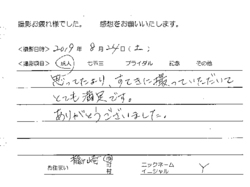 撮影お疲れ様でした。 感想をお願いいたします。
<撮影日時> 2019年 8月24日(土)
<撮影項目> 成人 七五三 ブライダル 記念 その他
思ってたより、すてきに撮っていただいて
とても満足です。
ありがとうございました。
お住まい ニックネーム
イニシャル Y